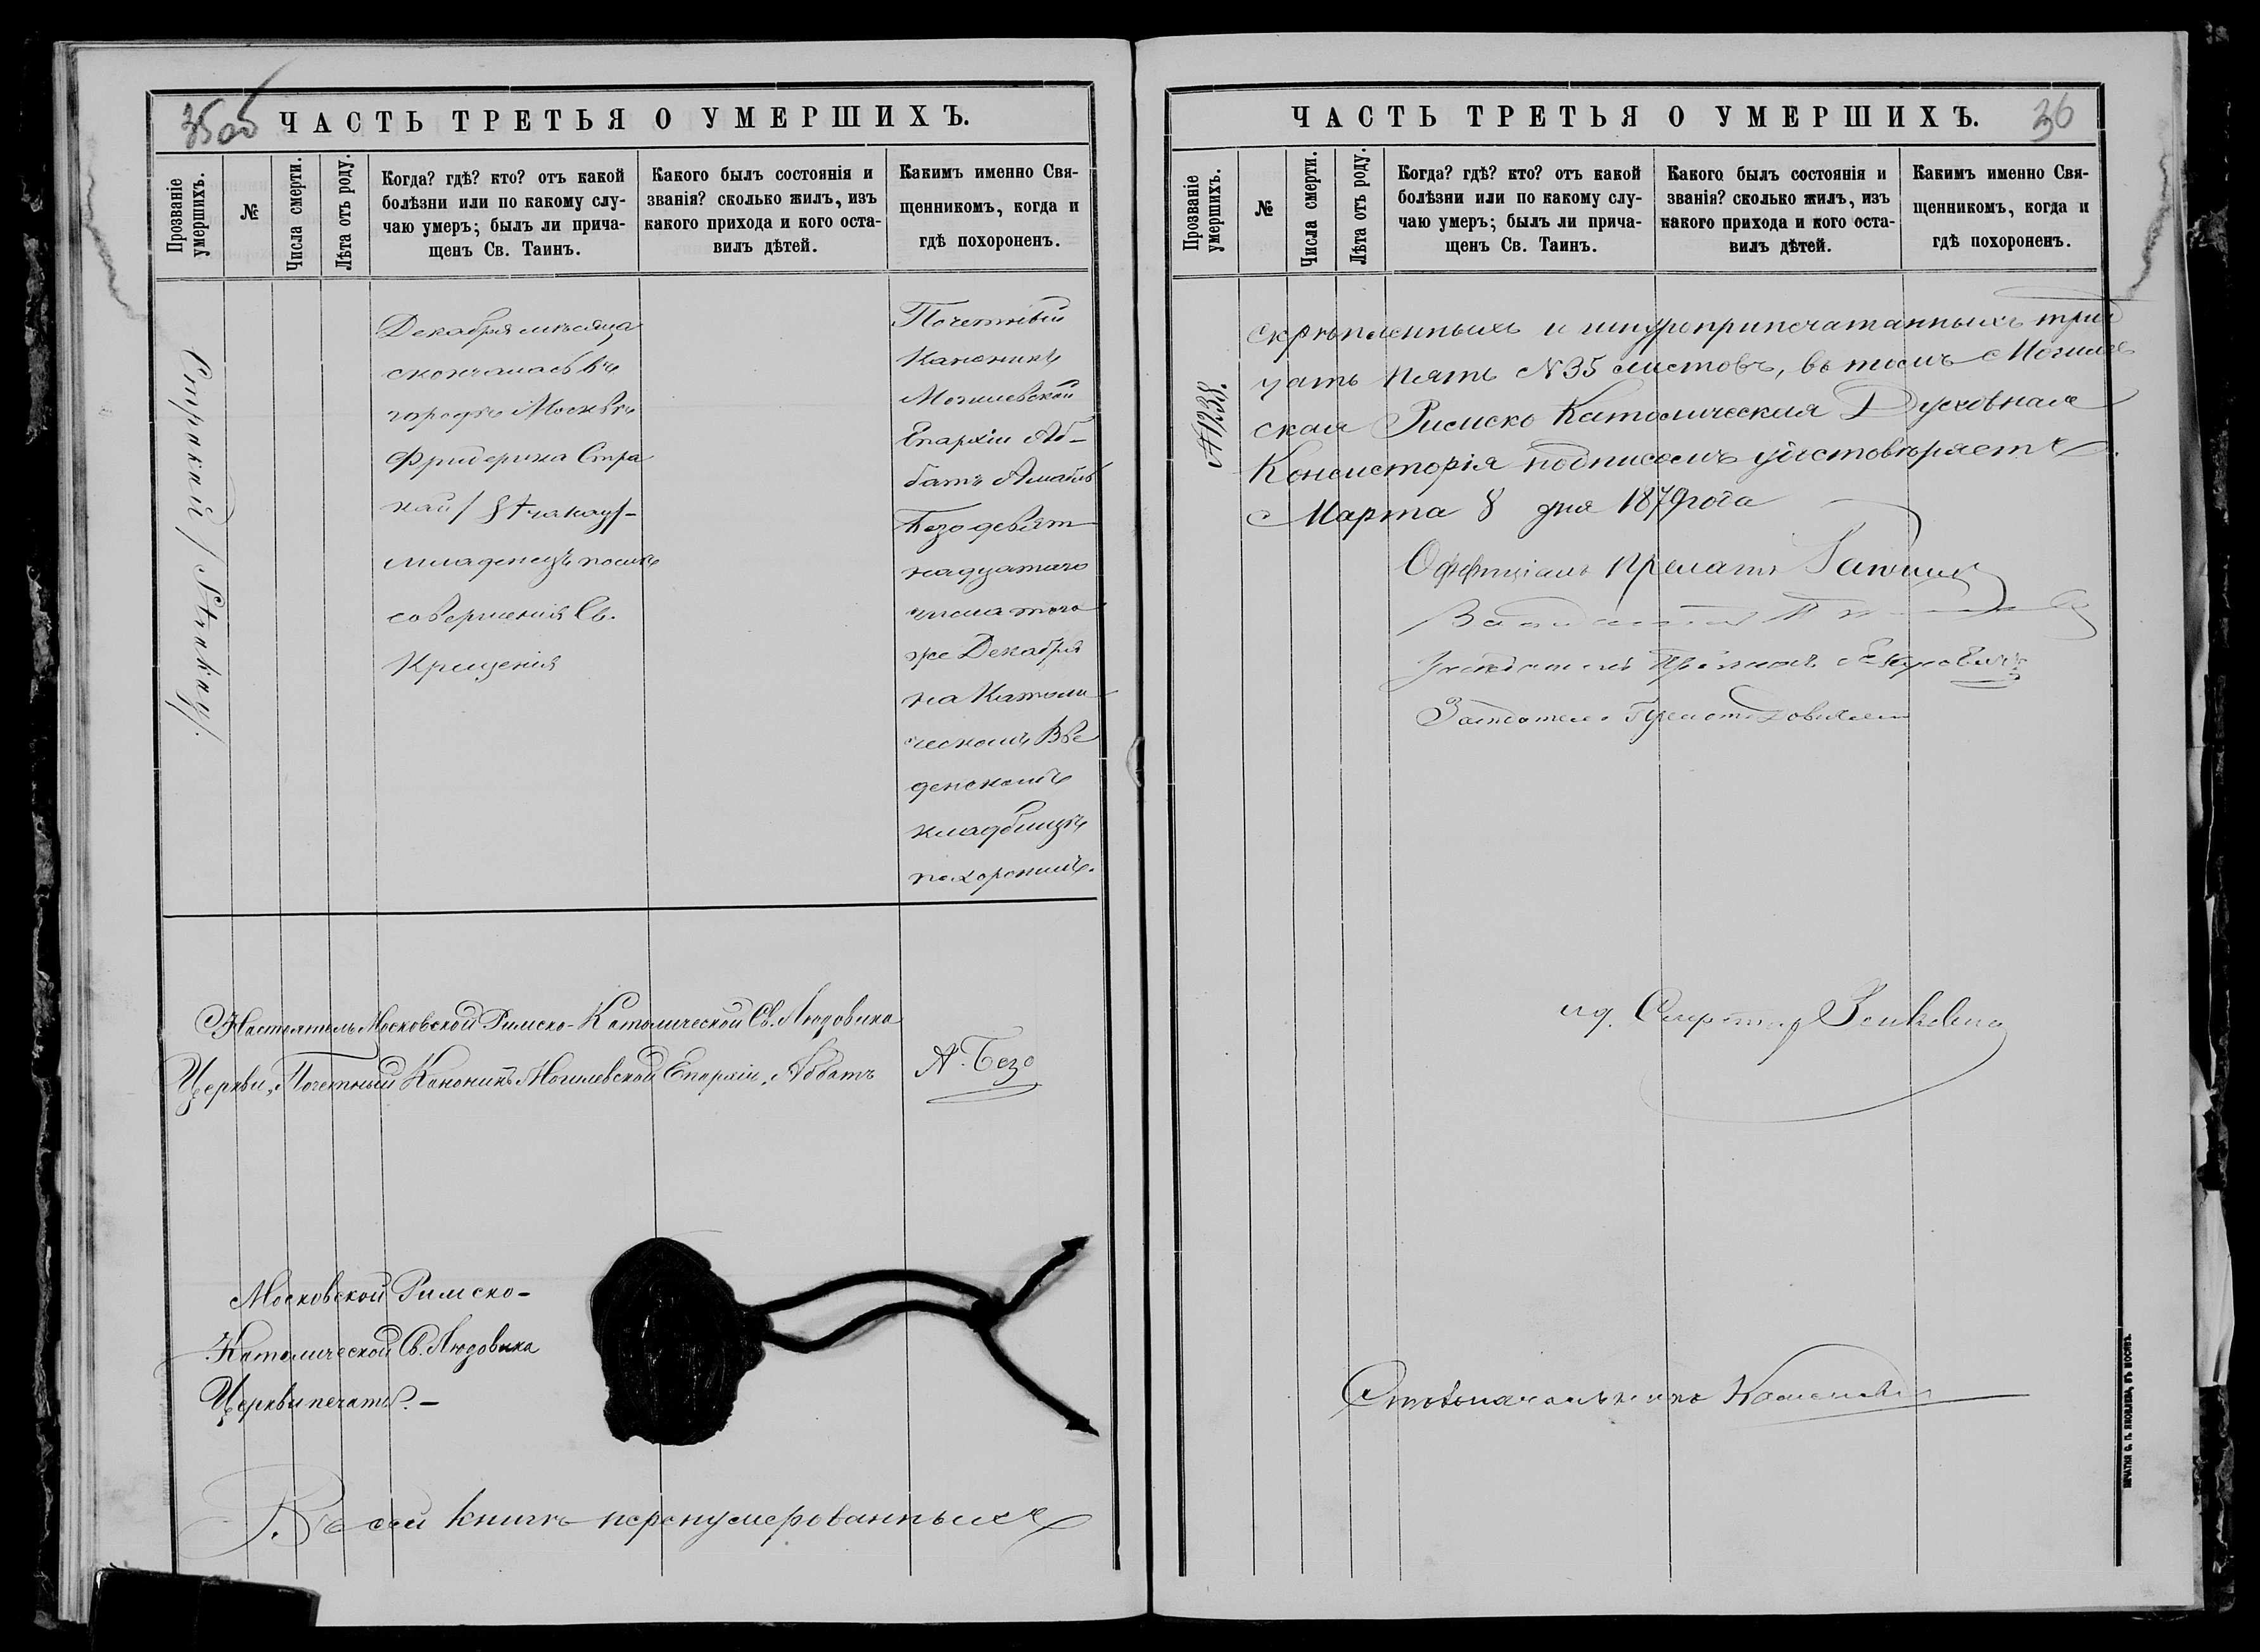 35об
ЧАСТЬ ТРЕТЬЯ О УМЕРШИХЪ.
Прозваніе умершихъ.
№
Числа смерти.
Лѣта отъ роду.
Когда? гдѣ? кто? отъ какой
болѣзни или по какому слу-
чаю умеръ; былъ ли прича-
щенъ Св. Таинъ.
Какого былъ состоянія и
званія? сколько жилъ, изъ
какого прихода и кого оста-
вилъ дѣтей.
Какимъ именно Свя-
щенникомъ, когда и
гдѣ похороненъ.
Стракай /Strakay/.
Декабря мѣсяца
скончалась въ
городѣ Москвѣ
Фридерика Стра
кай /Strakay/-
младенецъ послѣ
совершенія Св.
Крещенія
Почетный
Каноникъ
Могилевской
Епархіи Аб-
батъ Амабль
Безо девят
надцатаго
числа того
же Декабря
на Католи
ческомъ Вве
денскомъ
кладбищѣ
похоронилъ.
Настоятель Московской Римско-Католической Св. Людовика
Церкви, Почетный Каноникъ Могилевской Епархіи, Аббатъ А. Безо
Московской Римско-
Католической Св. Людовика
Церкви печать. –
Въ сей книгѣ перенумерованныхъ
ЧАСТЬ ТРЕТЬЯ О УМЕРШИХЪ.
36
Прозваніе умершихъ.
№
Числа смерти.
Лѣта отъ роду.
Когда? гдѣ? кто? отъ какой
болѣзни или по какому слу-
чаю умеръ; былъ ли прича-
щенъ Св. Таинъ.
Какого былъ состоянія и
званія? сколько жилъ, изъ
какого прихода и кого оста-
вилъ дѣтей.
Какимъ именно Свя-
щенникомъ, когда и
гдѣ похороненъ.
№ 1238.
скрѣпленныхъ и шнуроприпечатанныхъ трид
цать пять №35 листовъ, въ томъ Могилев
ская Римско Католическая Духовная
Консисторія подписомъ удостовѣряетъ.
Марта 8 дня 1879 года
Оффиціалъ Прелатъ
Засѣдатель
Засѣдатель
Засѣдатель
ид. Секретаря
Столоначальникъ
ПЕЧАТНЯ С. П. ЯКОВЛЕВА, ВЪ МОСКВѢ.